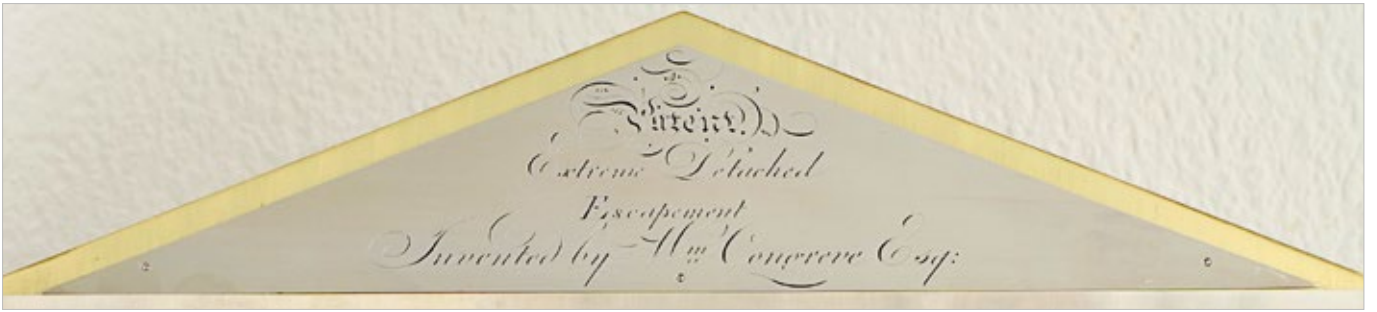 Patent
Extreme Detached
Escapement
Invented by Wm Congreve Esq: